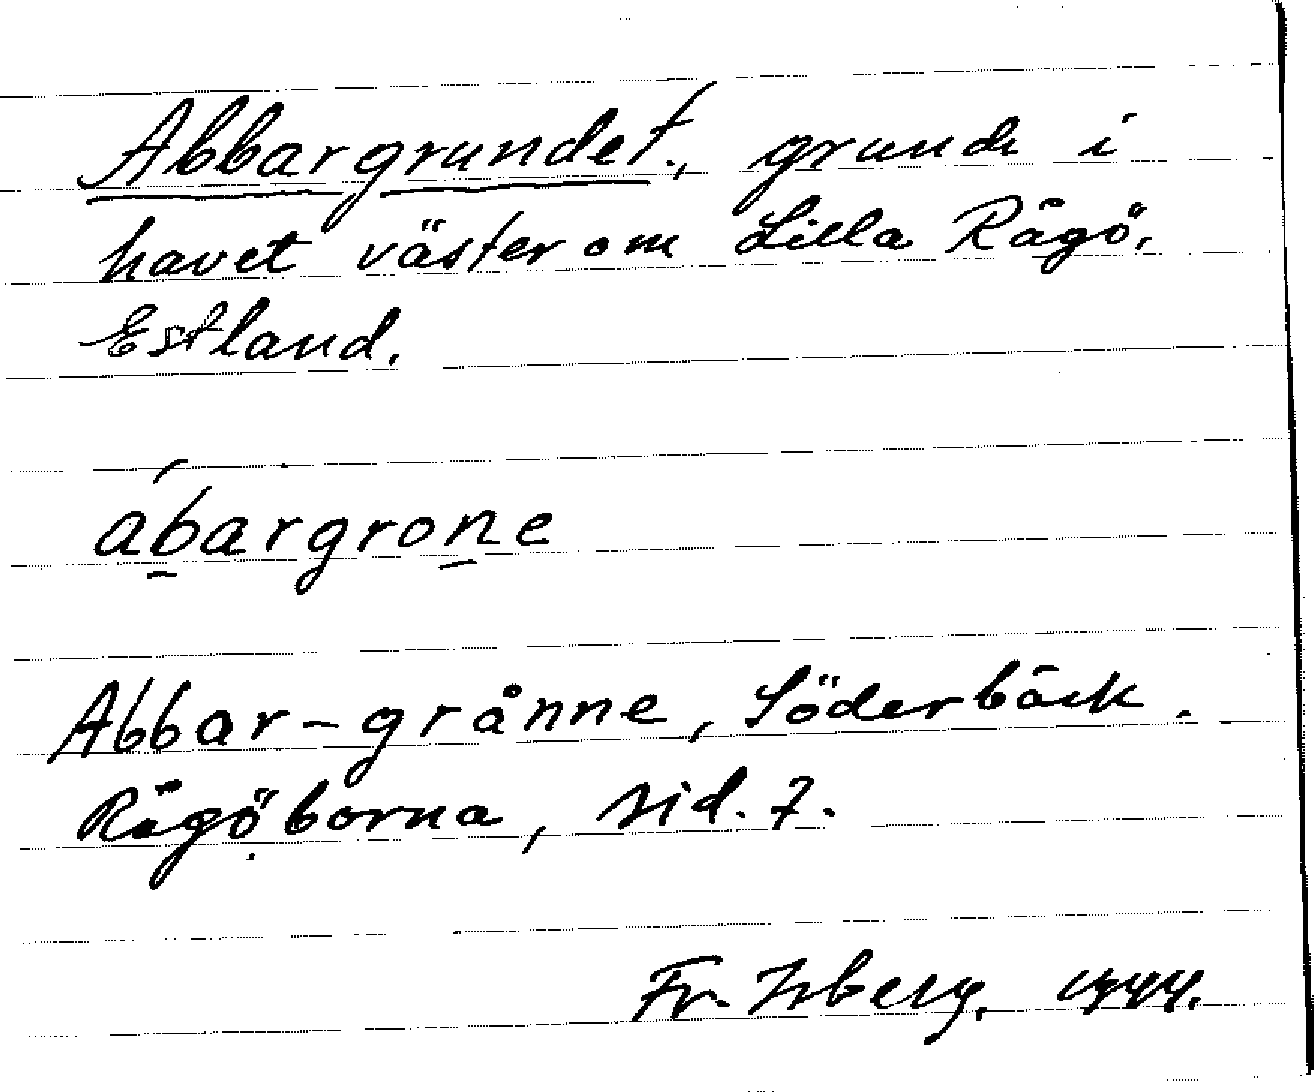 Abbargrundet., grund i
havet väster om Lilla Rågö,
Estland.
ábargrone
Abbar-grånne, Söderbäck.
Rågöborna, sid. 7.
Fr. Isberg, 1944.